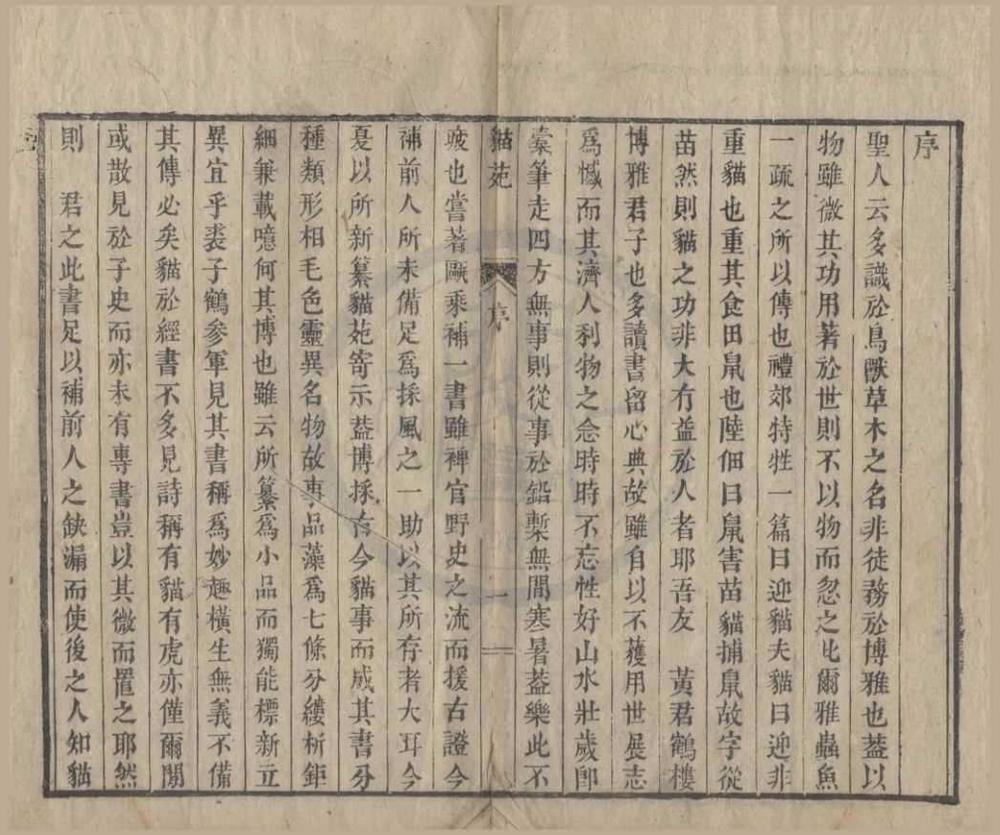 序
聖人云多識於鳥獸草木之名非徒務於博雅也葢以
物雖微其功用著於世則不以物而忽之此爾雅蟲魚
一疏之所以傳也禮郊特牲一篇曰迎貓夫貓曰迎非
重貓也重其食田鼠也陸佃曰鼠害苗貓捕鼠故字從
苗然則貓之功非大有益於人者耶吾友 黃君鶴樓
博雅君子也多讀書留心典故雖自以不獲用世展志
爲憾而其濟人利物之念時時不忘性好山水壯歲卽
槖筆走四方無事則從事於鉛槧無閒寒暑葢樂此不
貓苑 序 一
疲也嘗著甌乘補一書雖稗官野史之流而援古證今
補前人所未備足爲採風之一助以其所存者大耳今
夏以所新纂貓苑寄示葢博採古今貓事而成其書分
種類形相毛色靈異名物故事品藻爲七條分縷析鉅
細兼載噫何其博也雖云所纂爲小品而獨能標新立
異宜乎裘子鶴參軍見其書稱爲妙趣橫生無義不備
其傳必矣貓於經書不多見詩稱有貓有虎亦僅爾閒
或散見於子史而亦未有專書豈以其微而置之耶然
則 君之此書足以補前人之缺漏而使後之人知貓